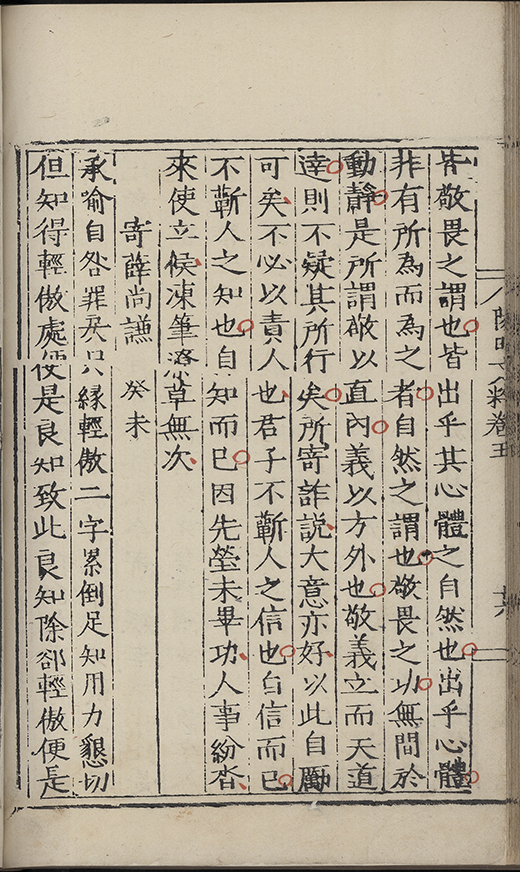 陽明文粹卷五 十六
皆敬畏之謂也皆出乎其心體之自然也出乎心體
非有所為而為之者自然之謂也敬畏之功無間於
動靜是所謂敬以直內義以方外也敬義立而天道
達則不疑其所行矣所寄詐說大意亦好以此自勵
可矣不必以責人也君子不蘄人之信也自信而已
不蘄人之知也自知而已因先塋未畢功人事紛沓
來使立候凍筆潦草無次
寄薛尚謙 癸未
承喻自咎罪疾只緣輕傲二字累倒足知用力懇切
但知得輕傲處便是良知致此良知除郤輕傲便是